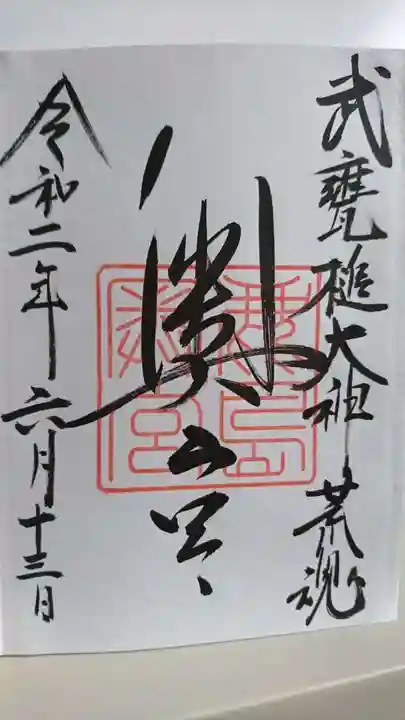 武甕槌大神 荒魂
奥宮
令和二年六月十三日